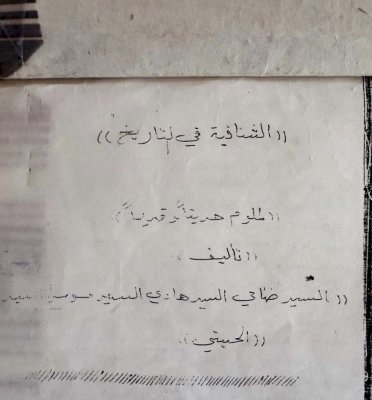 ((الشنافية في التاريخ))
((لملوم حديثاً وقديماً))
((تأليف))
((السيد ضاحي السيد هادي السيد موسى السيد
((الحبيتي))